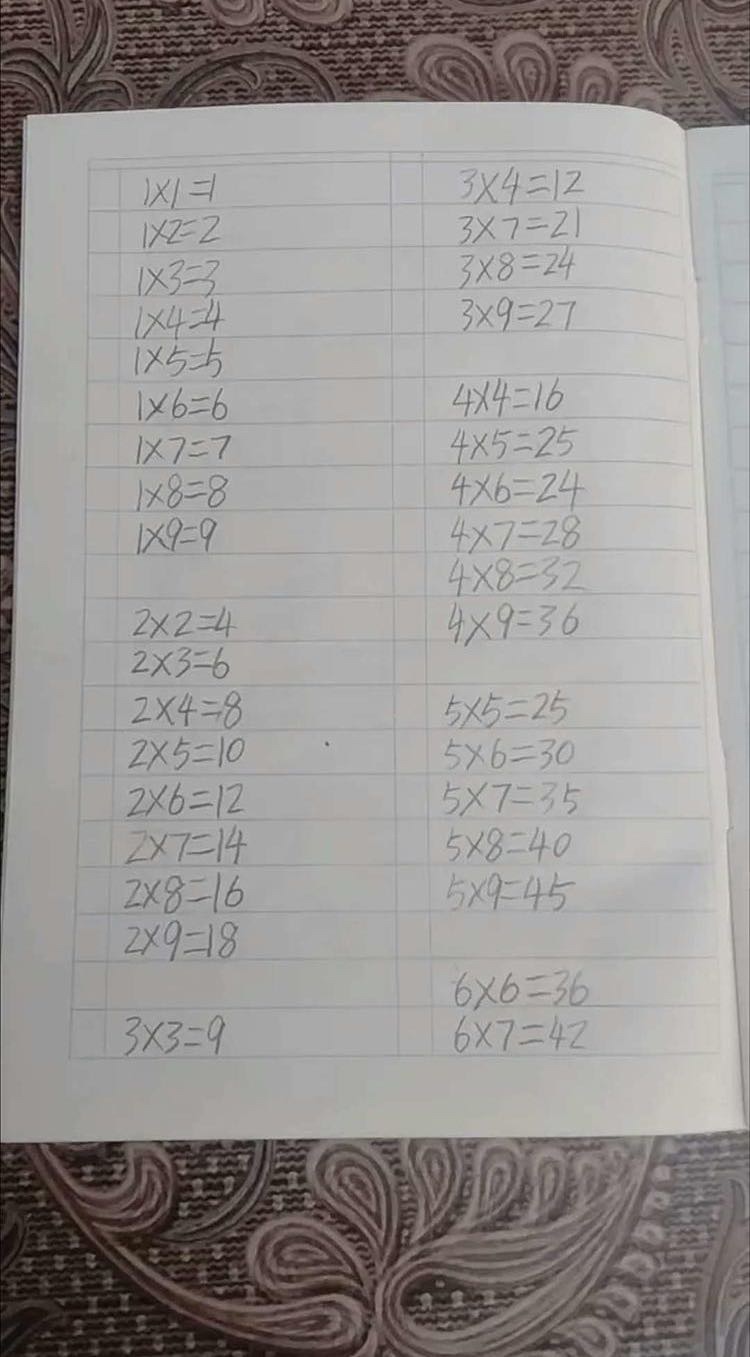 1×1=1
1×2=2
1×3=3
1×4=4
1×5=5
1×6=6
1×7=7
1×8=8
1×9=9
2×2=4
2×3=6
2×4=8
2×5=10
2×6=12
2×7=14
2×8=16
2×9=18
3×3=9
3×4=12
3×7=21
3×8=24
3×9=27
4×4=16
4×5=25
4×6=24
4×7=28
4×8=32
4×9=36
5×5=25
5×6=30
5×7=35
5×8=40
5×9=45
6×6=36
6×7=42